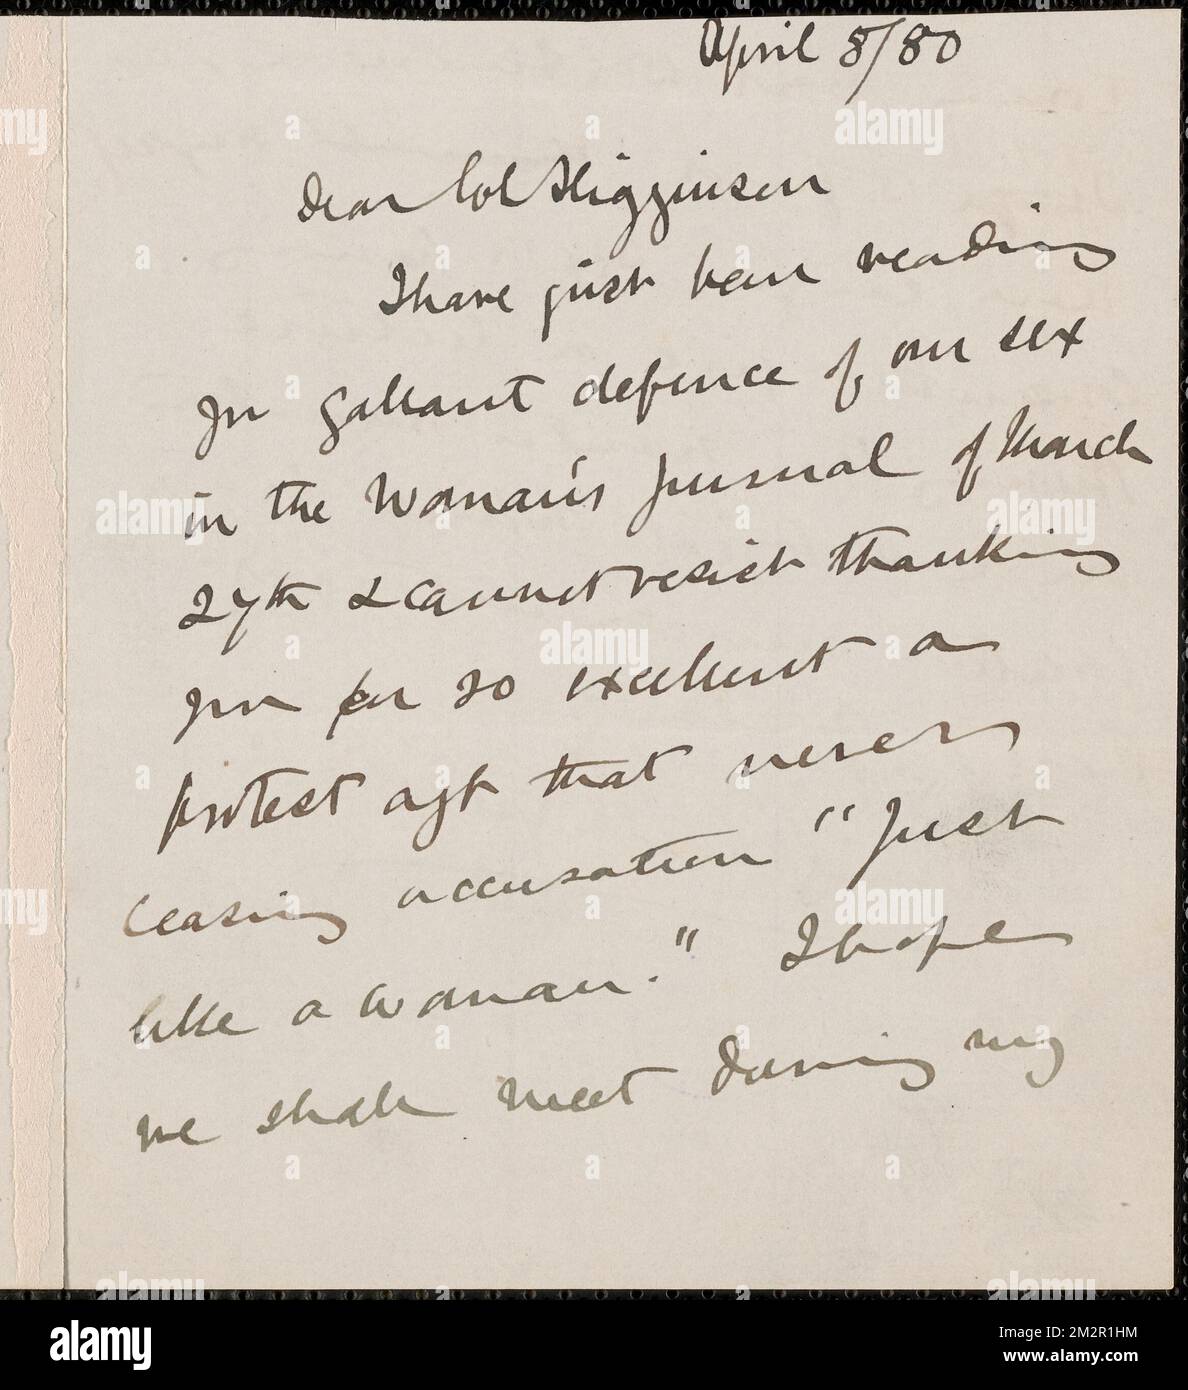 April 8/80
Dear Col Higginson
I have just been reading
yr gallant defence of our sex
in the Woman's Journal of March
27th & cannot resist thanking
you for so excellent a
protest agst that never
ceasing accusation "Just
like a woman." I hope
we shall meet during my
alamy
Image ID: 2M2R1HM
www.alamy.com